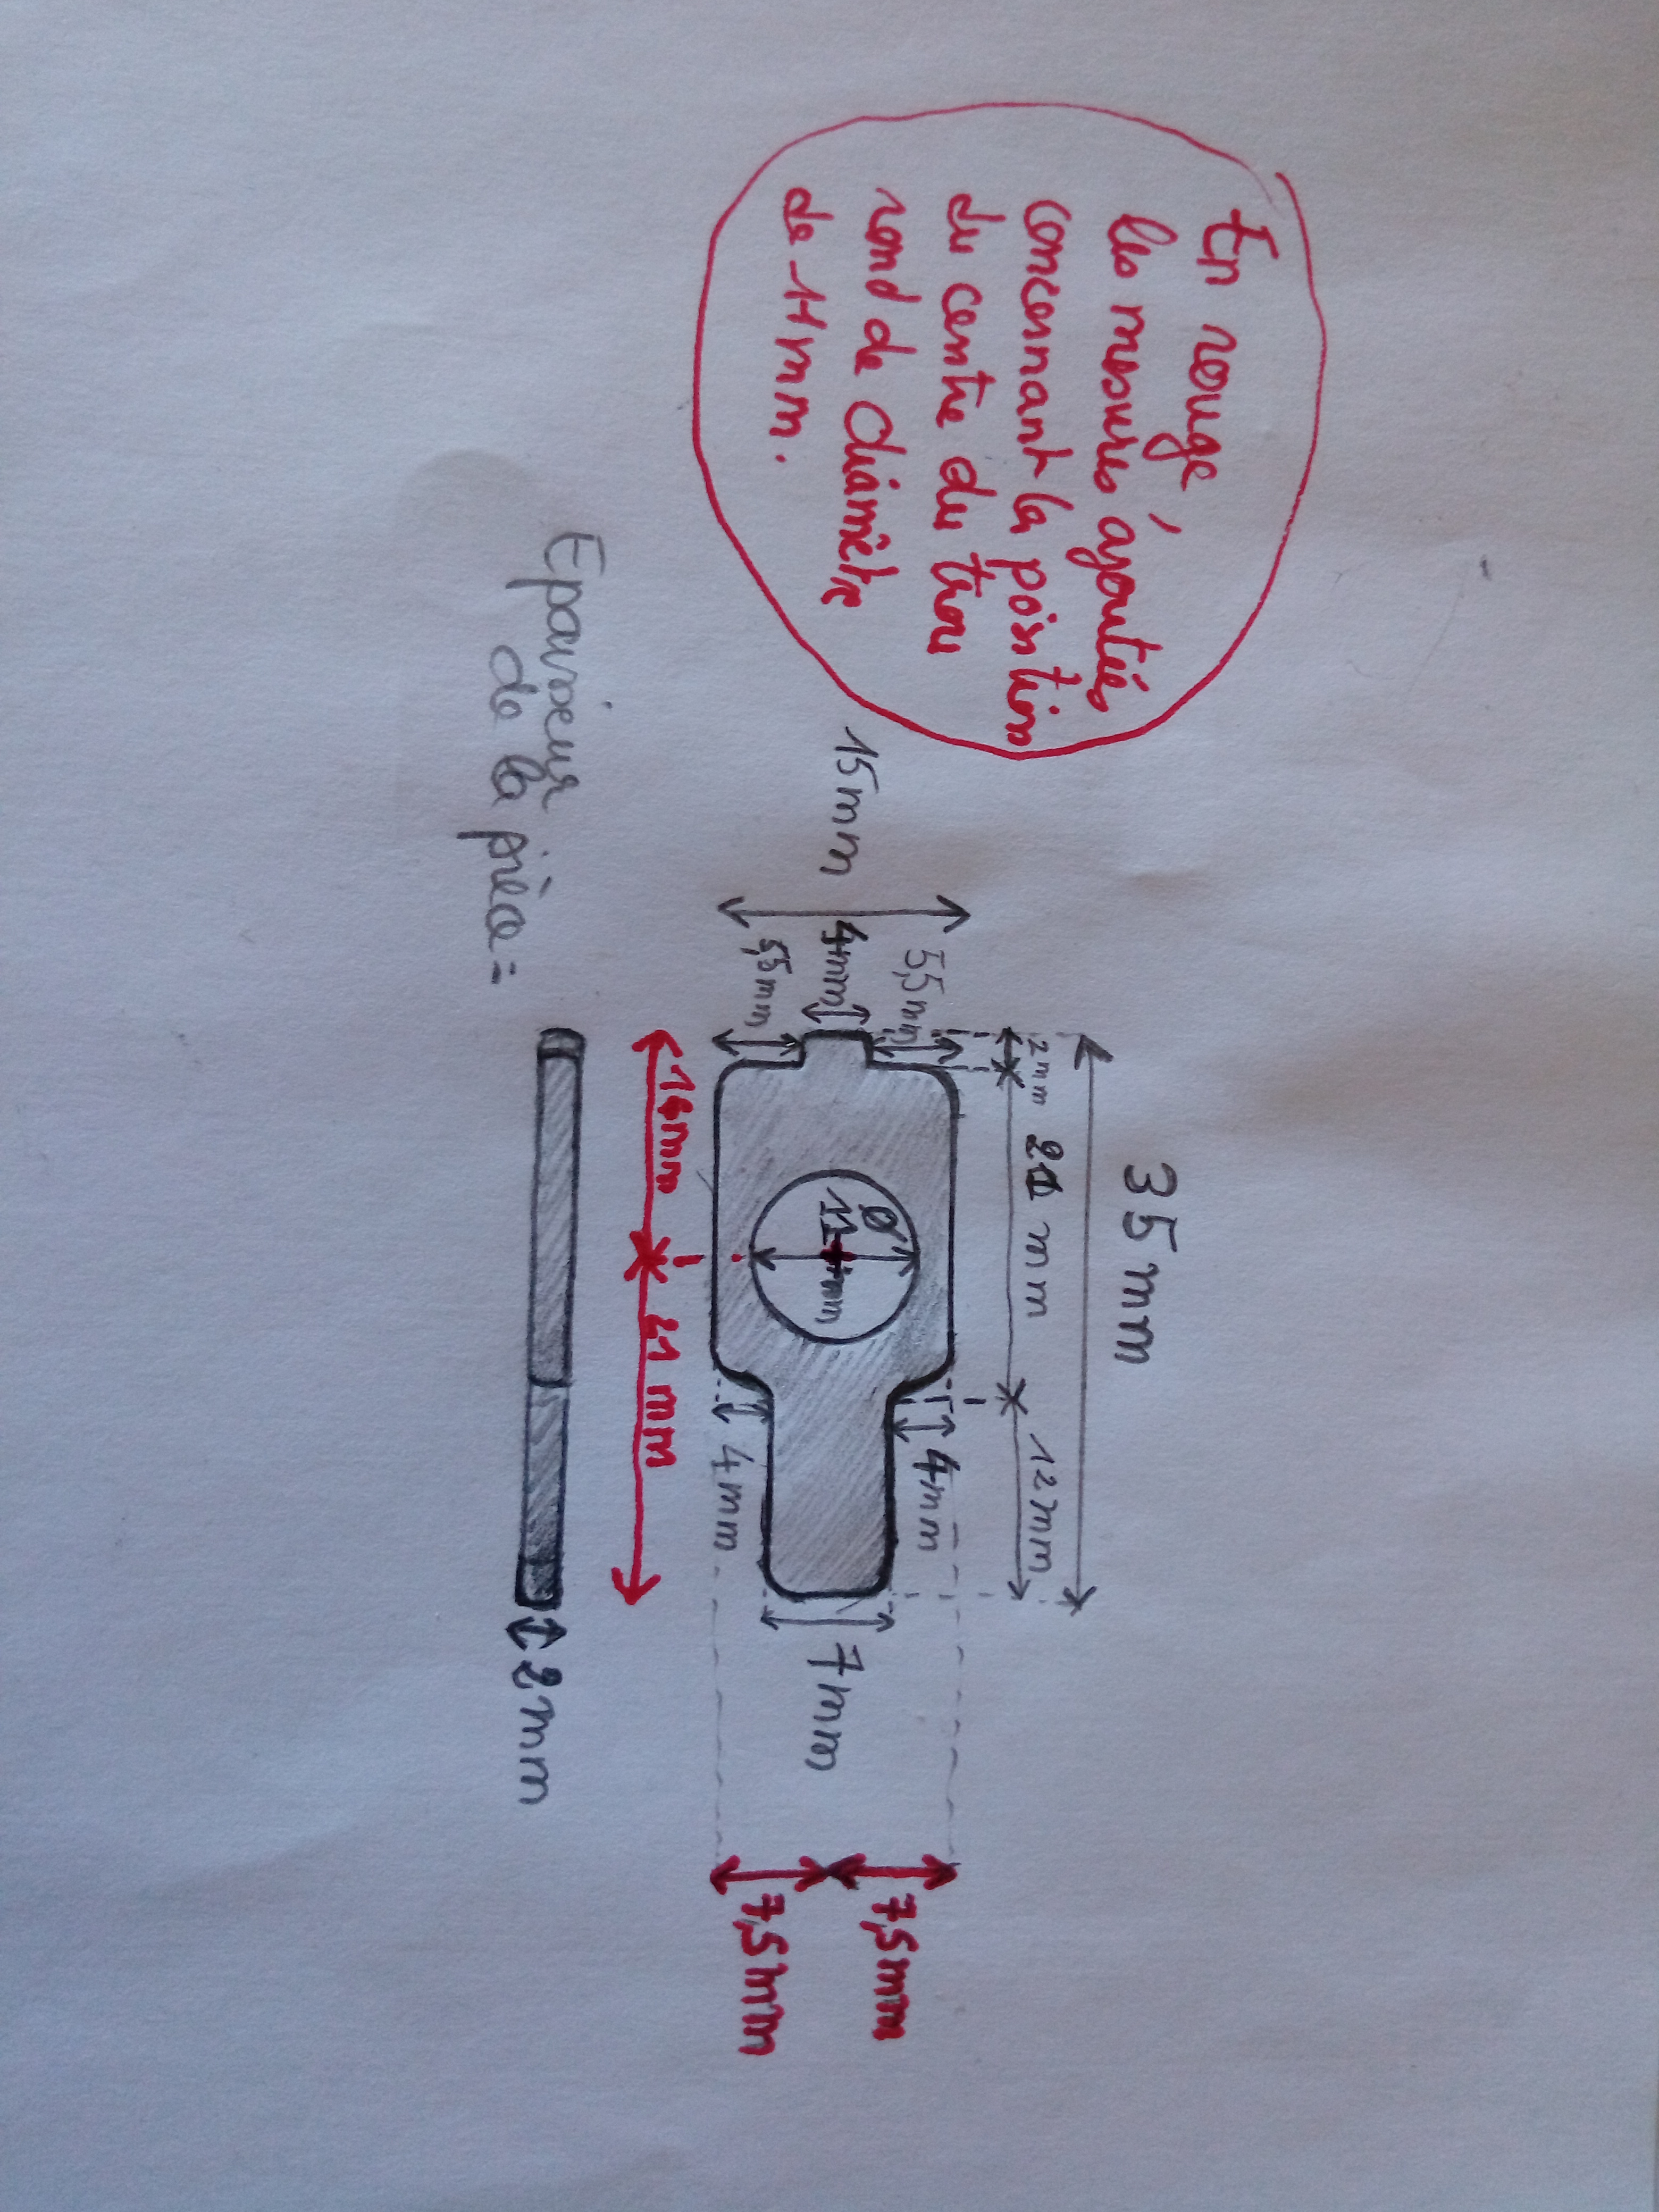 En rouge,
les mesures ajoutées
concernant la position
du centre du trou
rond de diamètre
de 11mm.
35 mm
2mm
21 mm
12mm
15mm
5,5mm
4mm
5,5mm
Ø
11mm
4mm
4mm
7mm
7,5mm
7,5mm
14mm
21 mm
Epaisseur
de la pièce =
2mm